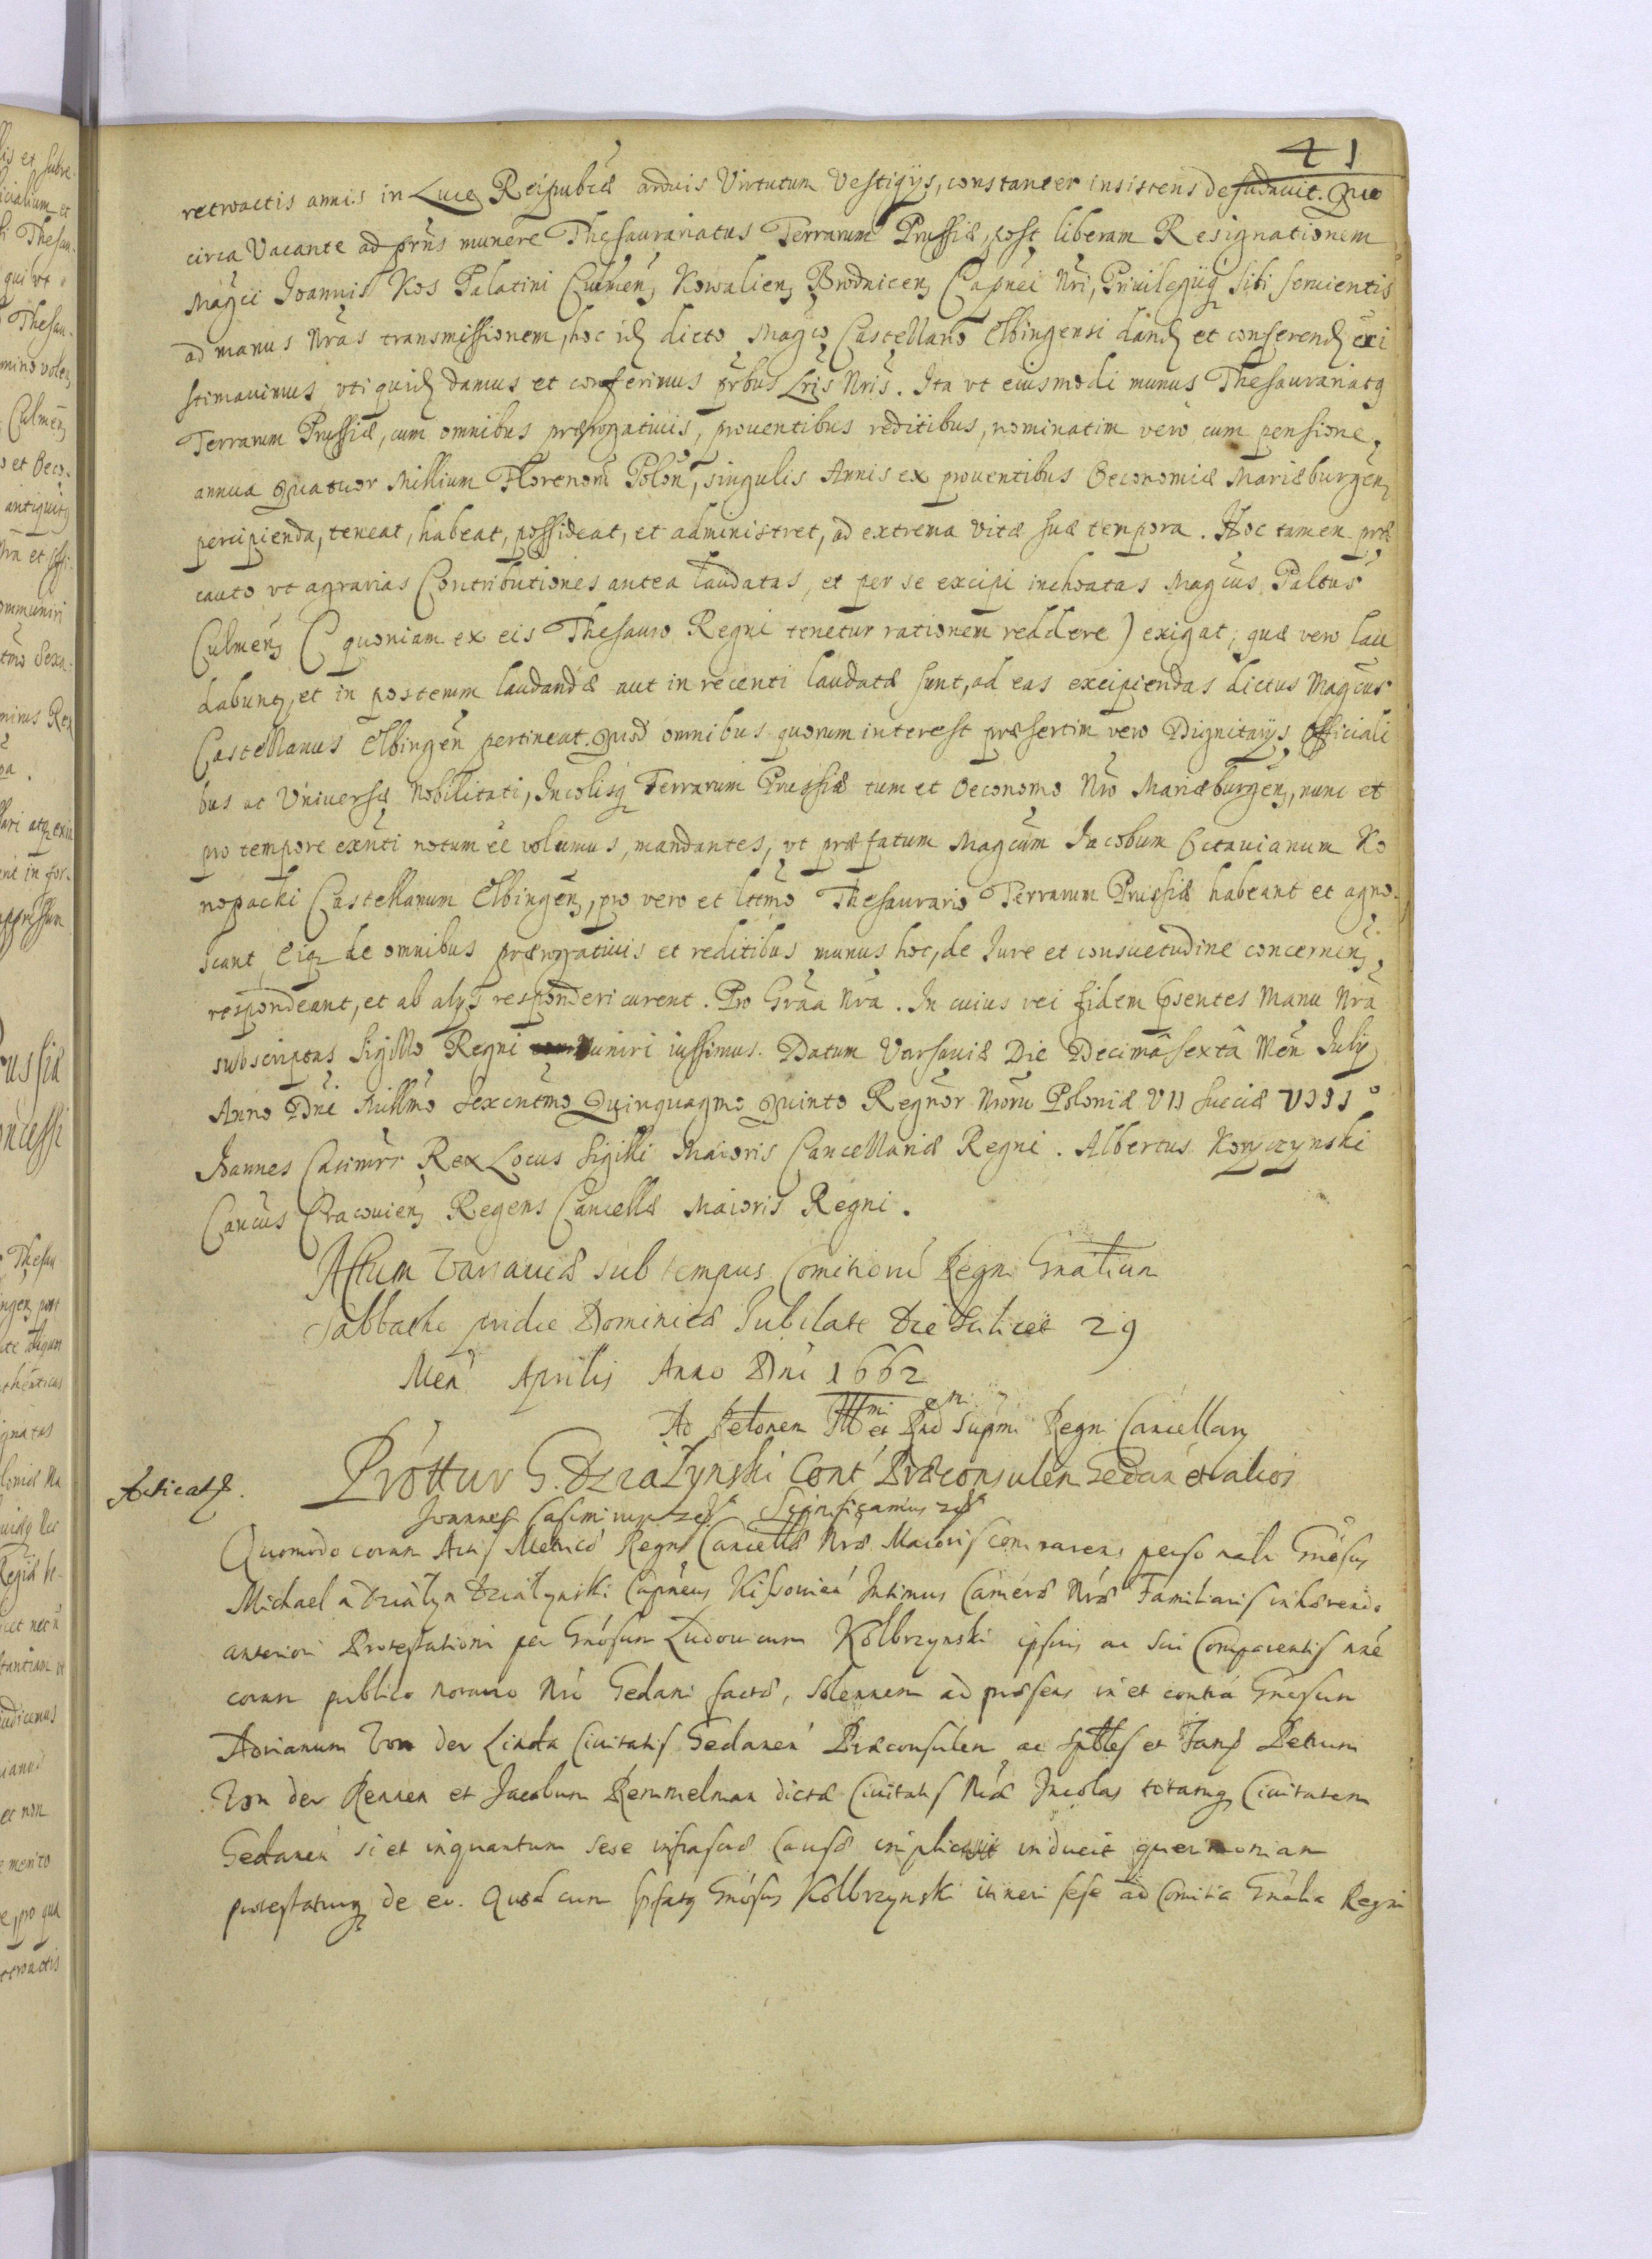 41
retroactis annis in Luce Reipublcæ arduis Virtutum Vestigijs, constanter insistens desudauit. Quo
circa Vacante ad prns munere Thesaurariatus Terrarum Prussiæ, post liberam Resignationem
Magci Joannis Kos Palatini Culmen, Kowalien, Brodnicen, Capnei Nri, Priuilegijq sibi seruientis
ad manus Nras transmissionem, hoc id dicto Magco Castellano Elbingensi dand et conferend exi
stimauimus, vti quid damus et conferimus prbus Lris Nris. Ita vt eiusmodi munus Thesaurariatq
Terrarum Prussiæ, cum omnibus prærogatiuis, prouentibus reditibus, nominatim vero cum pensione
annua Quatuor Millium Florenom Polon, singulis Annis ex prouentibus Oeconomiæ Mariæburgen,
percipienda, teneat, habeat, possideat, et administret, ad extrema vitæ suæ tempora. Hoc tamen præ
cauto vt agrarias Contributiones antea laudatas, et per se excipi inchoatas Magcus Paltus
Culmen, (quoniam ex eis Thesauro Regni tenetur rationem reddere) exigat, quæ vero lau
dabunt, et in posterum laudandæ aut in recenti laudatæ sunt, ad eas excipiendas dictus Magcus
Castellanus Elbingen pertineat. Quod omnibus quorum interest præsertim vero Dignitarijs Officiali
bus ac Vniuersæ Nobilitati, Incolisq Terrarum Prussiæ tum et Oeconomo Nro Mariæburgen, nunc et
pro tempore exnti notum ee volumus, mandantes, vt præfatum Magcum Jacobum Octauianum Ko
nopacki Castellanum Elbingen, pro vero et lttmo Thesaurario Terrarum Prussiæ habeant et agno
scant, Eiq de omnibus prærogatiuis et reditibus munus hoc, de Jure et consuetudine concernen,
respondeant, et ab alijs responderi curent. Pro Graa Nra. In cuius rei fidem psentes Manu Nra
subscriptas Sigillo Regni muniri iussimus. Datum Varsauiæ Die Decimâ sextâ Men July
Anno Dni Millmo Sexcentmo Quinquagmo Quinto Regnor Nroru Poloniæ VII Sueciæ VIII°
Joannes Casimirs Rex Locus Sigilli Maioris Cancellariæ Regni. Albertus Koryczynski
Cancus Cracouien, Regens Cancellæ Maioris Regni.
Actum Varsauiæ sub tempus Comitioru Regni Gnalium
Sabbatho pridie Dominicæ Jubilate Die Scilicet 29
Men Aprilis Anno Dni 1662
Ad Retonem Illmi et Rndmi Supmi Regni Cancellarij
Prottur G. Działynski Cont Præconsulen Gedan et alios
Acticat.
Joannes Casimirus Significamus
Quomodo coram Actis Metrices Regni Cancellæ Nræ Maioris comparens personalr Gnosus
Michael a Działyn Działynski Capneus Kiszouien Intimus Cameræ Nræ Familiaris inhærendo
anteriori Protestationi per Gnosum Ludouicum Kolbrzynski ipsius ac sui Comparentis nne
coram publico notario Nro Gedani factæ, Solennem ad præsens in et contra Gnosum
Adrianum Von der Linda Ciuitatis Gedanen Præconsulem ac Sptbles et Fam Petrum
Von der Rennen et Jacobum Remmelman dictæ Ciuitatis Nræ Incolas totamq Ciuitatem
Gedanen si et inquantum sese infrascæ Causæ implicuit inducit querimoniam
protestaturq de eo. Quod cum pfatq Gnosus Kolbrzynski itineri sese ad Comitia Gnalia Regni